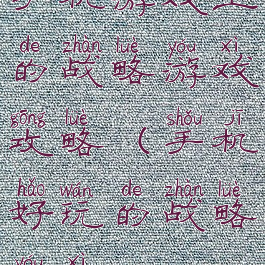 de zhàn lüè yóu xì
的战略游戏
gōng lüè shǒu jī
攻略（手机
hǎo wán de zhàn lüè
好玩的战略
yóu xì